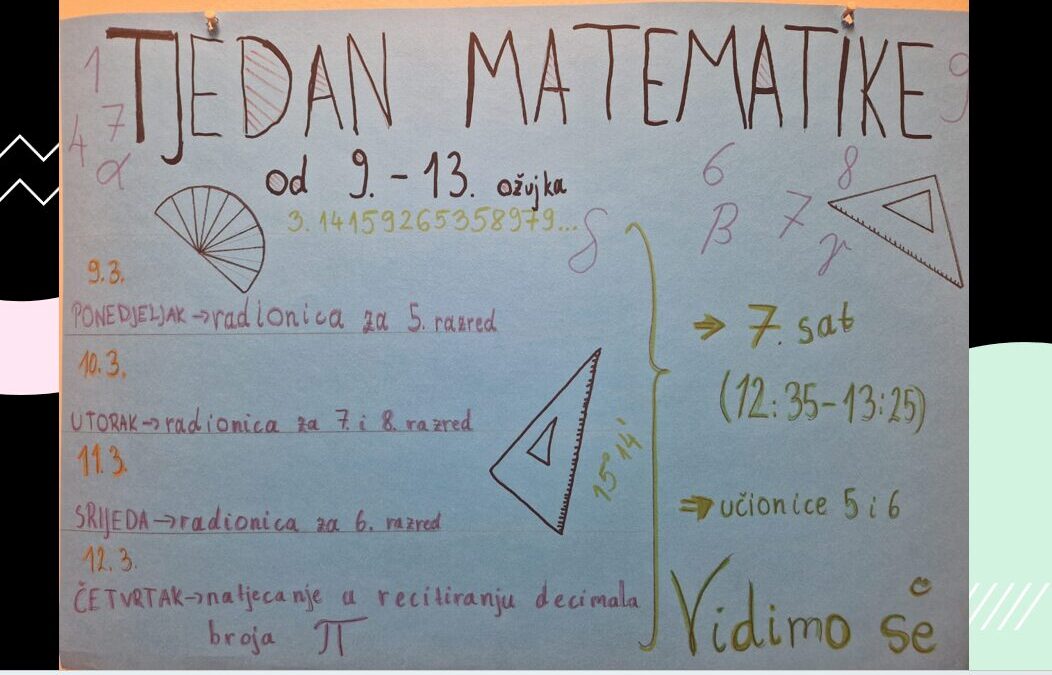 TJEDAN MATEMATIKE
1
4 7
α
9
od 9. - 13. ožujka
3.14159265358979...
δ
6 8
β 7 γ
9.3.
PONEDJELJAK → radionica za 5. razred
10.3.
UTORAK → radionica za 7. i 8. razred
11.3.
SRIJEDA → radionica za 6. razred
12.3.
ČETVRTAK → natjecanje u recitiranju decimala
broja π
15° 14'
⇒ 7. sat
(12:35-13:25)
⇒ učionice 5 i 6
Vidimo se